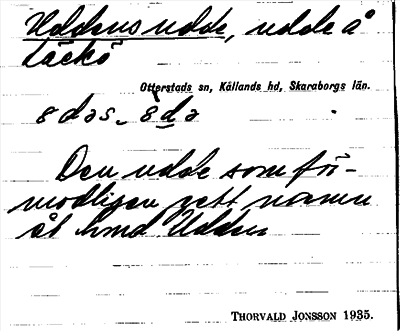 Uddens udde, udde å
Läckö
Otterstads sn, Kållands hd, Skaraborgs län.
Den udde som för-
modligen gett namn
åt hmd Udden
THORVALD JONSSON 1935.